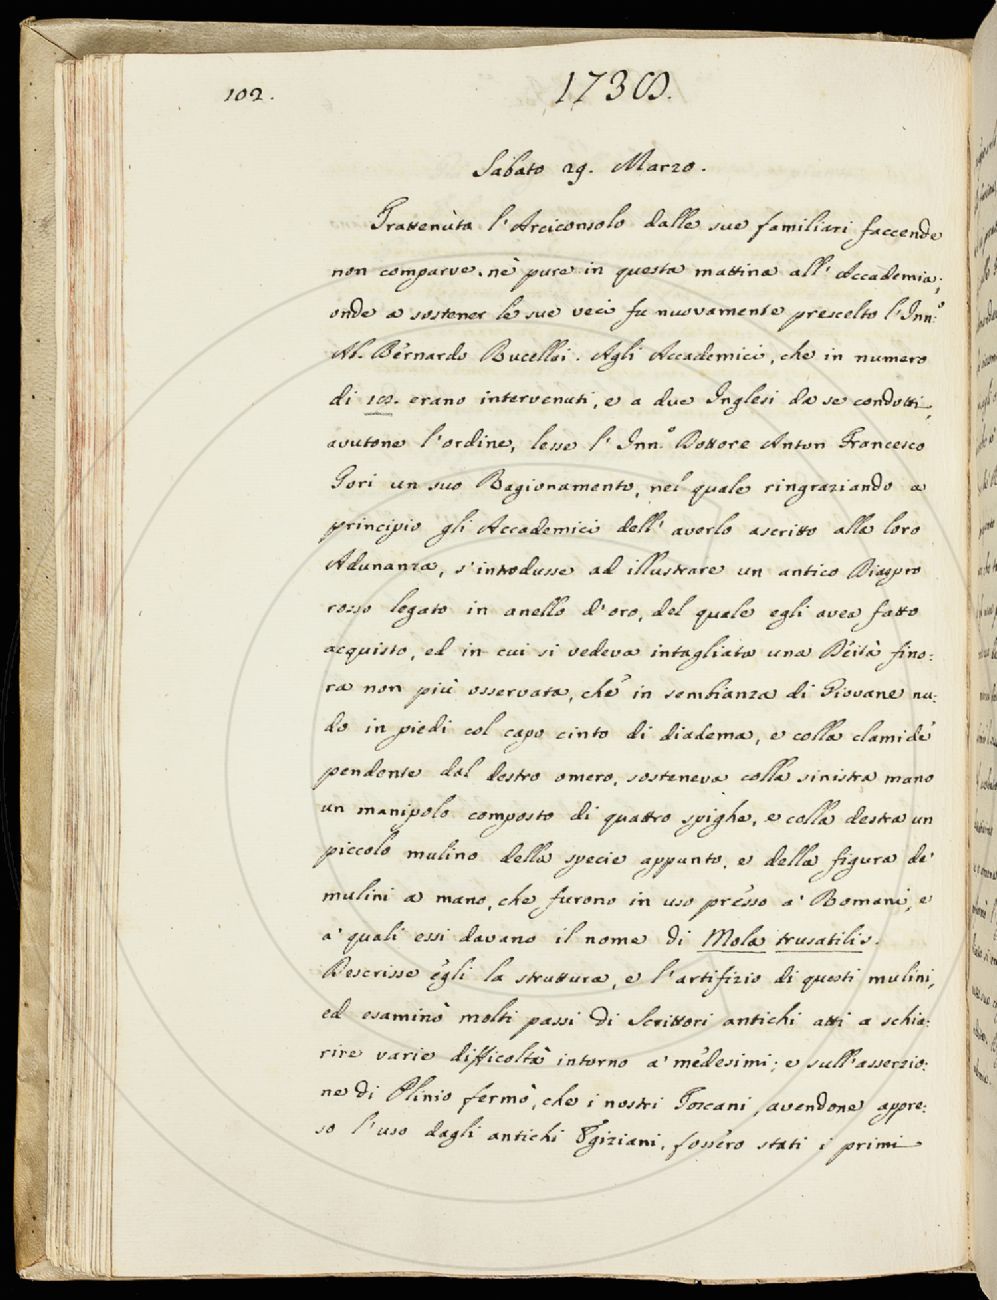 102.
1738.
Sabato 29. Marzo.
Trattenuto l'Arciconsolo dalle sue familiari faccende
non comparve nè pure in questa mattina all'Accademia;
onde a sostener le sue veci fu nuovamente prescelto l'Inn:º
Ab. Bernardo Bucellai. Agli Accademici, che in numero
di erano intervenuti, e a due Inglesi da se condotti,
avutone l'ordine, lesse l'Inn.º Dottore Anton Francesco
Gori un suo Ragionamento, nel quale ringraziando a
principio gli Accademici dell'averlo ascritto alla loro
Adunanza, s'introdusse ad illustrare un antico Diaspro
rosso legato in anello d'oro, del quale egli avea fatto
acquisto, ed in cui si vedeva intagliata una Deità fino:
ra non più osservata, che in sembianza di Giovane nu:
do in piedi col capo cinto di diadema, e colla clamide
pendente dal destro omero, sosteneva colla sinistra mano
un manipolo composto di quattro spighe, e colla destra un
piccolo mulino della specie appunto, e della figura de'
mulini a mano, che furono in uso presso a' Romani, e
a' quali essi davano il nome di Mola trusatilis.
Descrisse egli la struttura, e l'artifizio di questi mulini,
ed esaminò molti passi di Scrittori antichi atti a schia:
rire varie difficoltà intorno a' medesimi; e sull'asserzio:
ne di Plinio fermò, che i nostri Toscani, avendone appre:
so l'uso dagli antichi Egiziani, fossero stati i primi